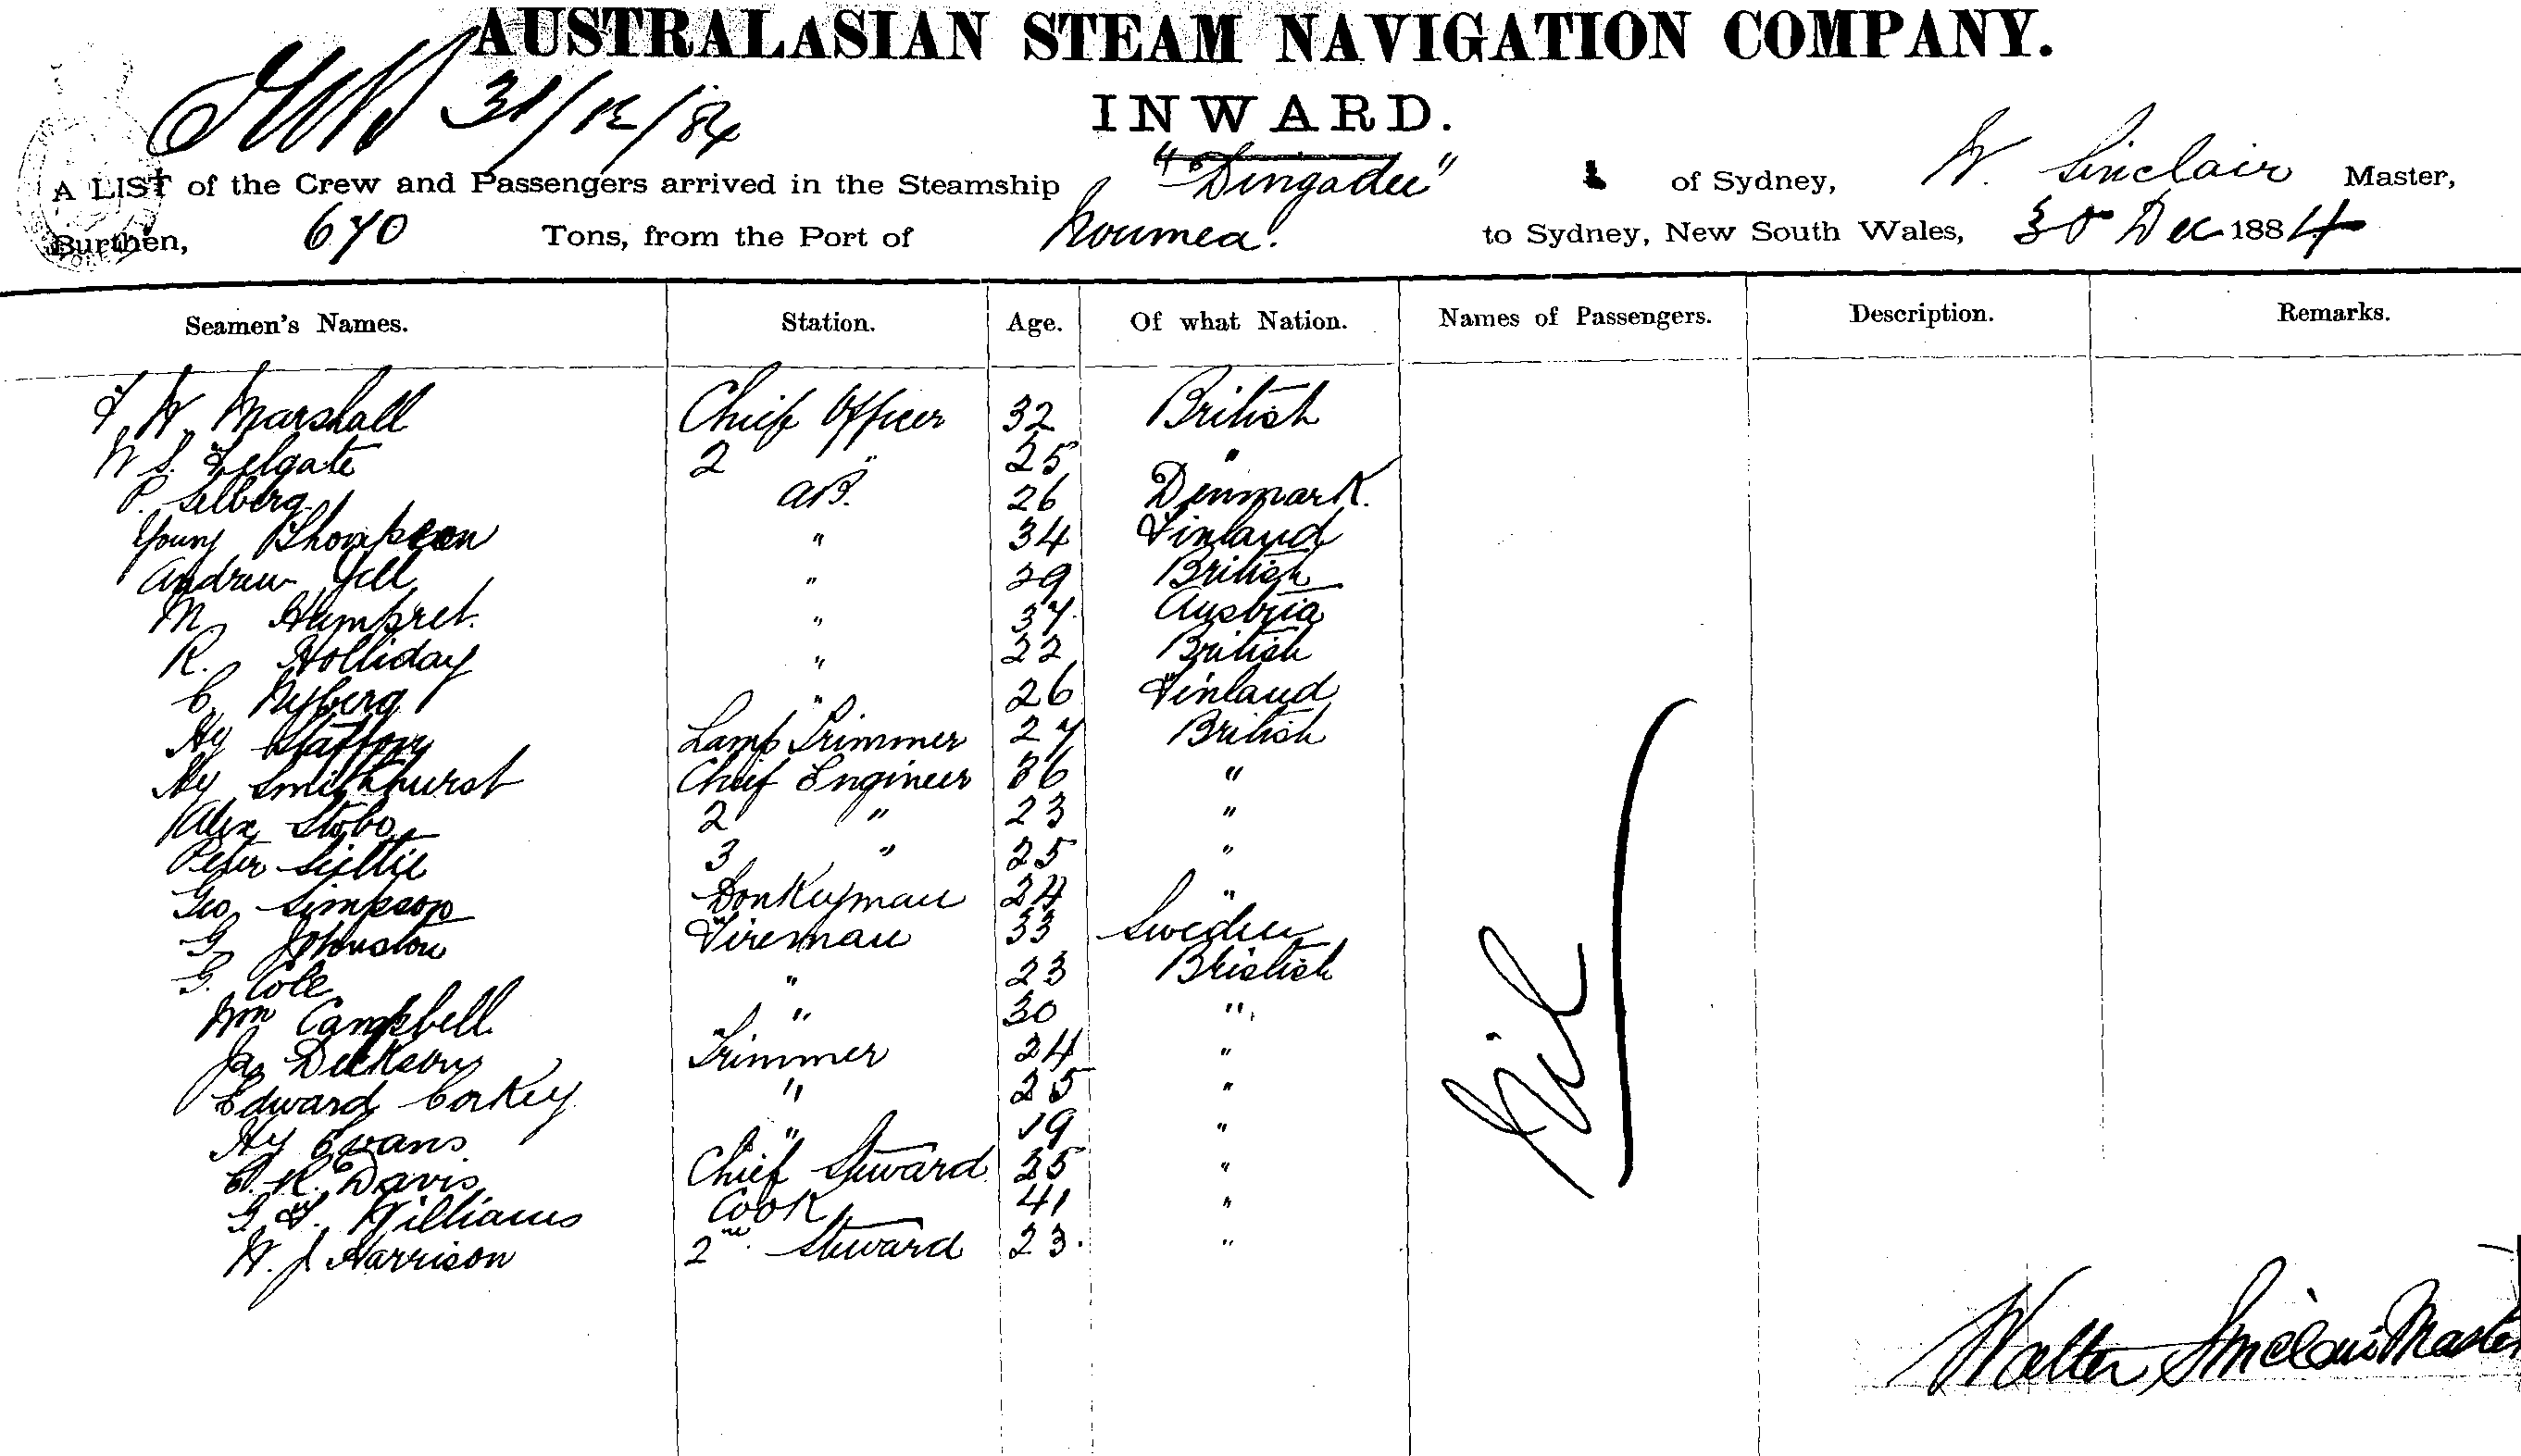 AUSTRALASIAN STEAM NAVIGATION COMPANY.
31/12/84
INWARD.
A LIST of the Crew and Passengers arrived in the Steamship "Dingadee" of Sydney, W. Sinclair Master,
Burthen, 670 Tons, from the Port of Noumea. to Sydney, New South Wales, 30 Dec 1884
Seamen's Names. Station. Age. Of what Nation. Names of Passengers. Description. Remarks.
F W Marshall Chief Officer 32 British
W S. Felgate 2 " 25 "
P. Selberg AB. 26 Denmark.
Young Thompson " 34 Finland
Andrew Gill " 29 British
M. Humpret. " 37. Austria
R. Holliday " 22 British
C. Nyberg " 26 Finland
Hy Lamp Trimmer 27 British
Hy Smithhurst Chief Engineer 36 "
Alex Stobo 2 " 23 "
Peter 3 " 25 "
Geo Simpson Donkeyman 24 "
G Johnston Fireman 33 Sweden
G. Cole " 23 British
Wm Campbell " 30 "
Jas Dickson Trimmer 24 "
Edward Corkey. " 25 "
Hy Evans. " 19 "
R. Davis Chief Steward 25 "
G. F. Williams Cook 41 "
W. J Harrison 2nd. Steward 23. "
Nil
Walter Sinclair Master